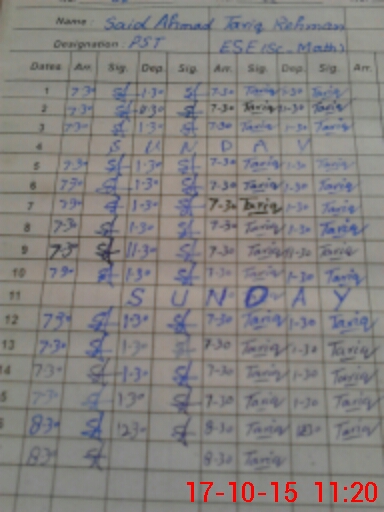 Name: Said Ahmad Tariq Rehman
Designation: PST ESE (Sc-Math)
Dates Arr. Sig. Dep. Sig. Arr. Sig. Dep. Sig. Arr.
1 7-30 1-30 7-30 Tariq 1-30 Tariq
2 7-30 1-30 7-30 Tariq 1-30 Tariq
3 7-30 1-30 7-30 Tariq 1-30 Tariq
4 S U N D A Y
5 7-30 1-30 7-30 Tariq 1-30 Tariq
6 7-30 1-30 7-30 Tariq 1-30 Tariq
7 7-30 1-30 7-30 Tariq 1-30 Tariq
8 7-30 1-30 7-30 Tariq 1-30 Tariq
9 7-30 1-30 7-30 Tariq 1-30 Tariq
10 7-30 1-30 7-30 Tariq 1-30 Tariq
11 S U N D A Y
12 7-30 1-30 7-30 Tariq 1-30 Tariq
13 7-30 1-30 7-30 Tariq 1-30 Tariq
14 7-30 1-30 7-30 Tariq 1-30 Tariq
5 7-30 1-30 7-30 Tariq 1-30 Tariq
6 8-30 12-30 8-30 Tariq 12-30 Tariq
8-30 8-30 Tariq
17-10-15 11:20